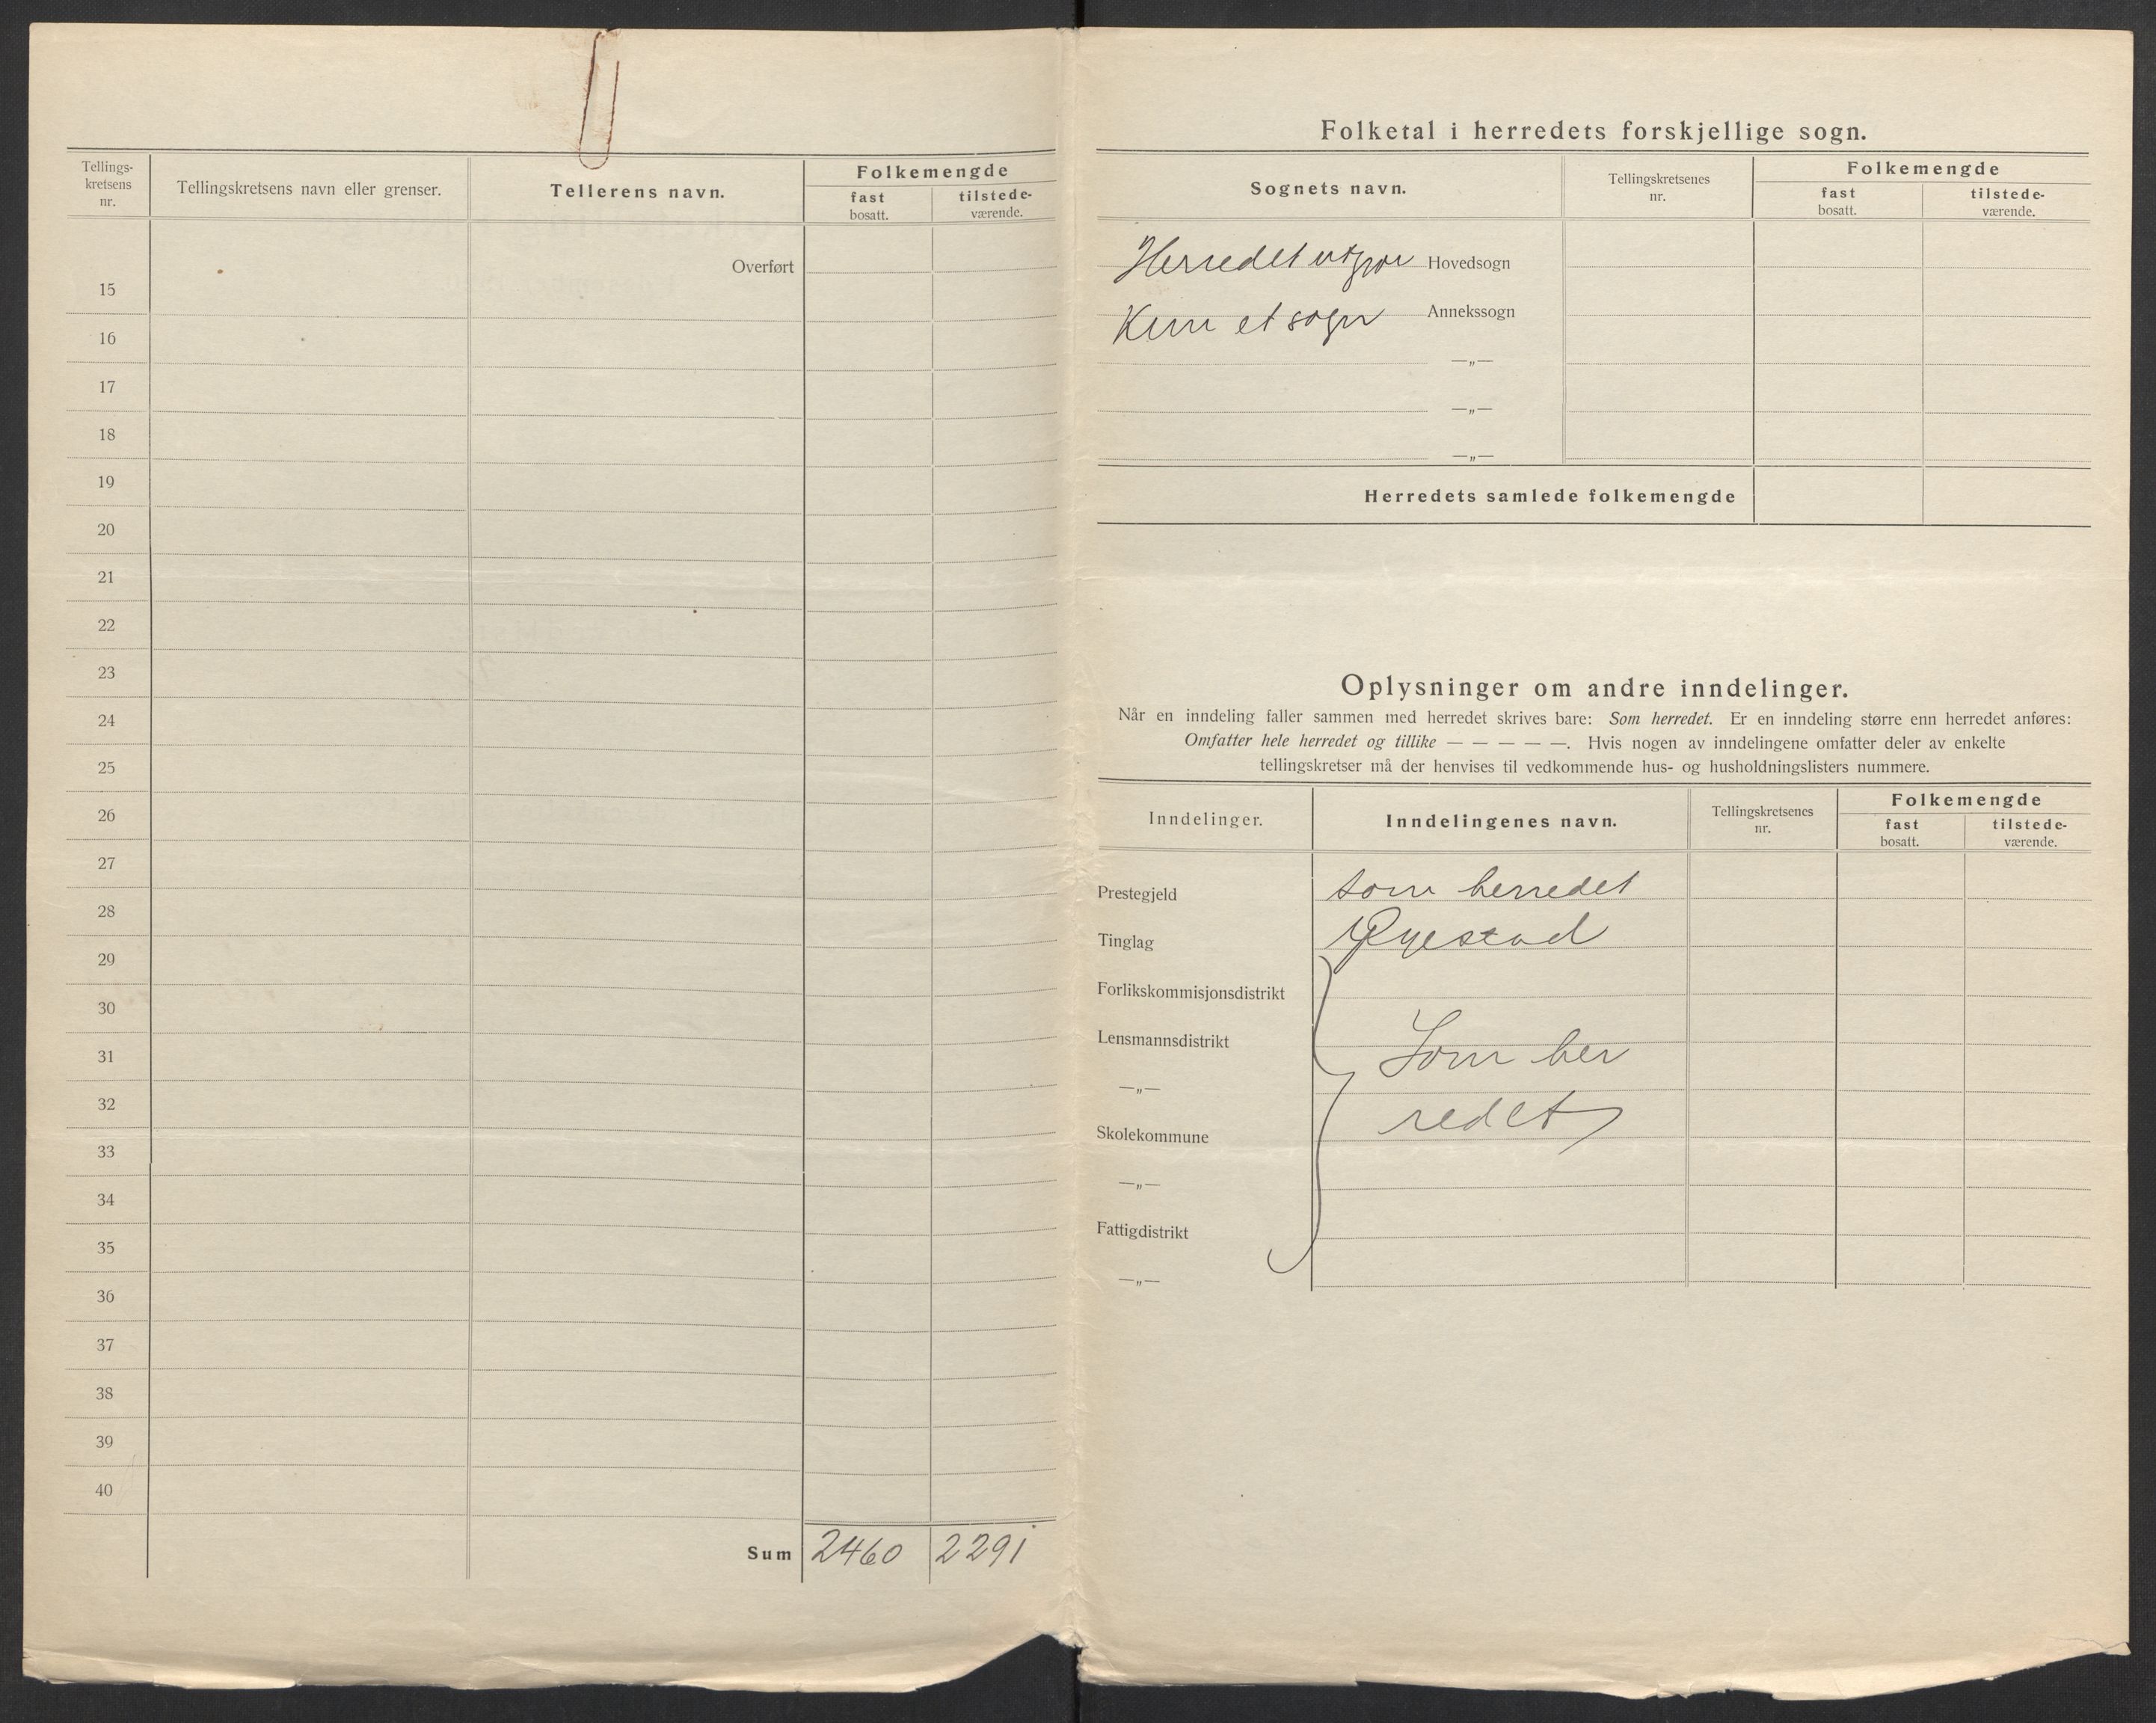 Tellings-
kretsens
nr.
Tellingskretsens navn eller grenser.
Tellerens navn.
Folkemengde
fast
bosatt.
tilstede-
værende.
Overført
15
16
17
18
19
20
21
22
23
24
25
26
27
28
29
30
31
32
33
34
35
36
37
38
39
40
Sum 2460 2291
Folketal i herredets forskjellige sogn.
Sognets navn.
Tellingskretsenes
nr.
Folkemengde
fast
bosatt.
tilstede-
værende.
Herredet utgjør Hovedsogn
Kun et sogn Annekssogn
—„—
—„—
—„—
Herredets samlede folkemengde
Oplysninger om andre inndelinger.
Når en inndeling faller sammen med herredet skrives bare: Som herredet. Er en inndeling større enn herredet anføres:
Omfatter hele herredet og tillike — — — — —. Hvis nogen av inndelingene omfatter deler av enkelte
tellingskretser må der henvises til vedkommende hus- og husholdningslisters nummere.
Inndelinger.
Inndelingenes navn.
Tellingskretsenes
nr.
Folkemengde
fast
bosatt.
tilstede-
værende.
Prestegjeld som herredet
Tinglag Øyestad
Forlikskommisjonsdistrikt
Lensmannsdistrikt Som her
—„—
redet
Skolekommune
—„—
Fattigdistrikt
—„—